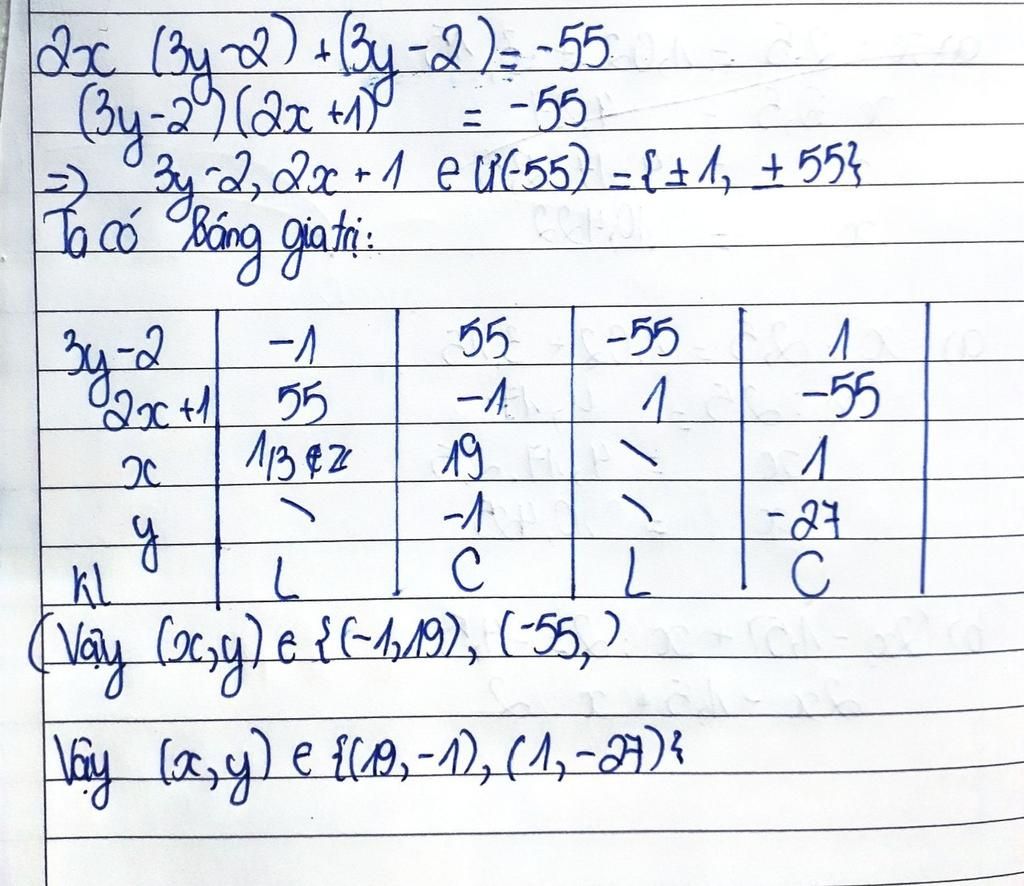 2x (3y-2) + (3y-2) = -55
(3y-2)(2x+1) = -55
=> 3y-2, 2x+1 ∈ Ư(-55) = {±1, ±55}
Ta có bảng giá trị:
3y-2 -1 55 -55 1
2x+1 55 -1 1 -55
x 1/3 ∉ Z 19 \ 1
y \ -1 \ -27
Kl L C L C
(Vậy (x,y) ∈ {(-1,19), (-55, )
Vậy (x,y) ∈ {(19,-1), (1,-27)}